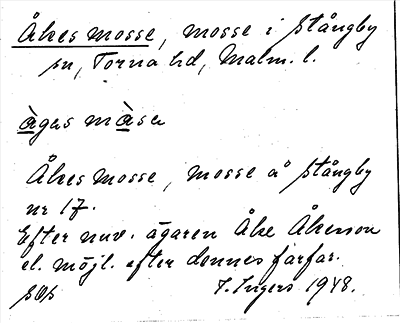 Åkes mosse, mosse i Stångby
sn, Torna hd, Malm. l.
ågas måsa
Åkes mosse, mosse å Stångby
nr 17.
Efter nuv. ägaren Åke Åkesson
el. möjl. efter dennes farfar.
SOS I. Ingers 1948.